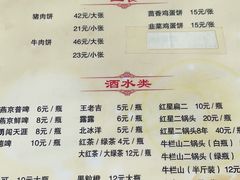 猪肉饼 42元/大张 茴香鸡蛋饼 15元/张
21元/小张 韭菜鸡蛋饼 15元/张
牛肉饼 46元/大张
23元/小张
酒水类
燕京普啤 6元/瓶 王老吉 5元/瓶 红星扁二 10元/瓶
燕京鲜啤 8元/瓶 露露 6元/瓶 红星二锅头 20元/瓶
勇闯天涯 8元/瓶 北冰洋 5元/瓶 红星二锅头8年 40元/
啤 10元/瓶 红茶/绿茶 4元/瓶 牛栏山二锅头(白瓶)
大红茶/大绿茶 12元/瓶 牛栏山二锅头(绿瓶)
元/瓶 果粒橙 12元/大瓶 牛栏山(半斤装)12元